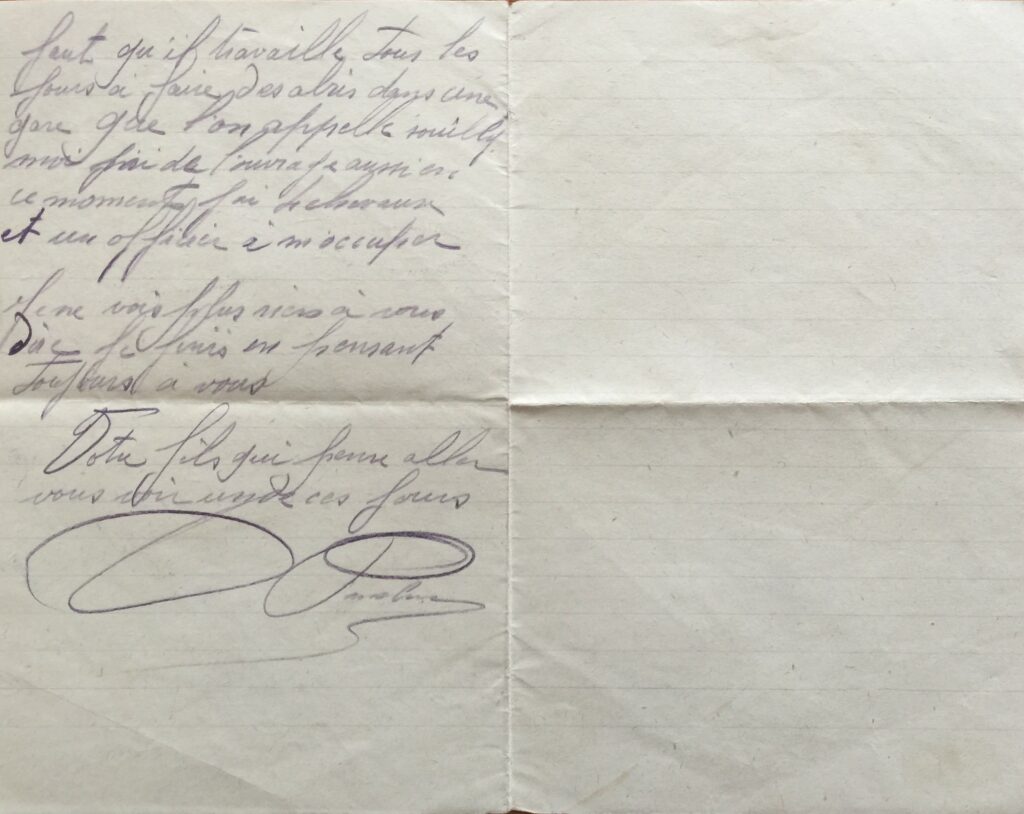 faut qu'il travaille tous les
jours à faire des abris dans une
gare que l'on appelle souilly
moi j'ai de l'ouvrage aussi en
ce moment j'ai chevaux
et un officier à m'occuper
Je ne vois plus rien à vous
dire je finis en pensant
toujours à vous
Votre fils qui pense aller
vous voir un de ces jours